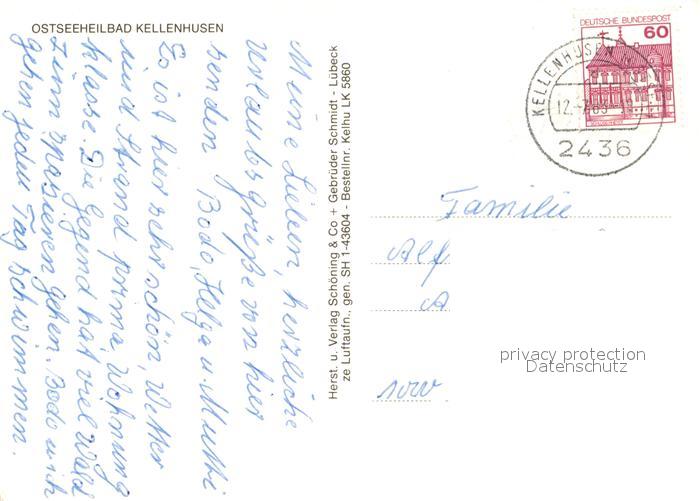 OSTSEEHEILBAD KELLENHUSEN
Meine Lieben, herzliche
Urlaubsgrüße von hier
senden Bodo, Helga u. Mutti
Es ist hier sehr schön, Wetter
und Strand prima, Wohnung
klasse. Die Gegend hat viel Wald
zum spazieren gehen. Bodo u. ich
gehen jeden Tag schwimmen.
Herst. u. Verlag Schöning & Co + Gebrüder Schmidt - Lübeck
ze Luftaufn., gen. SH 1-43604 - Bestellnr. Kelhu LK 5860
DEUTSCHE BUNDESPOST
60
KELLENHUSEN
2436
Familie
Alf
A
privacy protection
Datenschutz